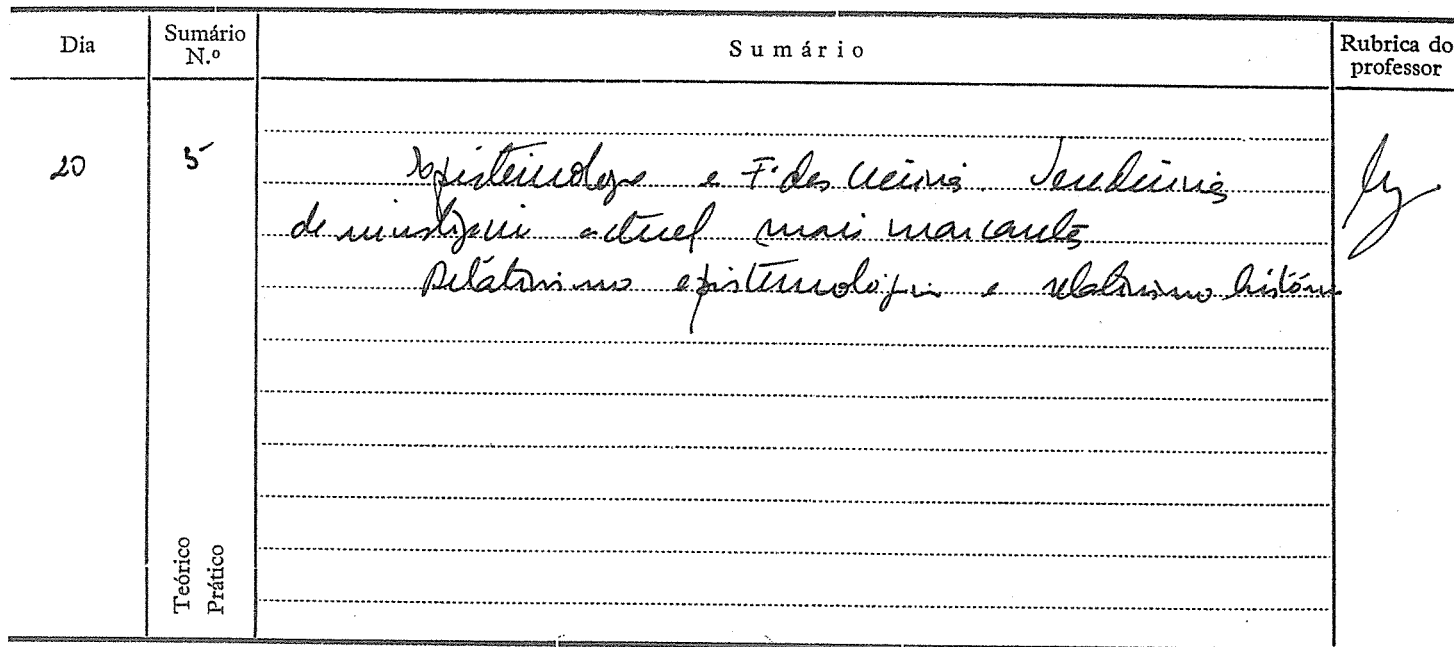 Dia
Sumário N.º
Sumário
Rubrica do professor
20
5
Epistemologia e F. das Ciências. Tendências
de investigação actual mais marcantes
Relativismo epistemológico e relativismo históric
Teórico
Prático